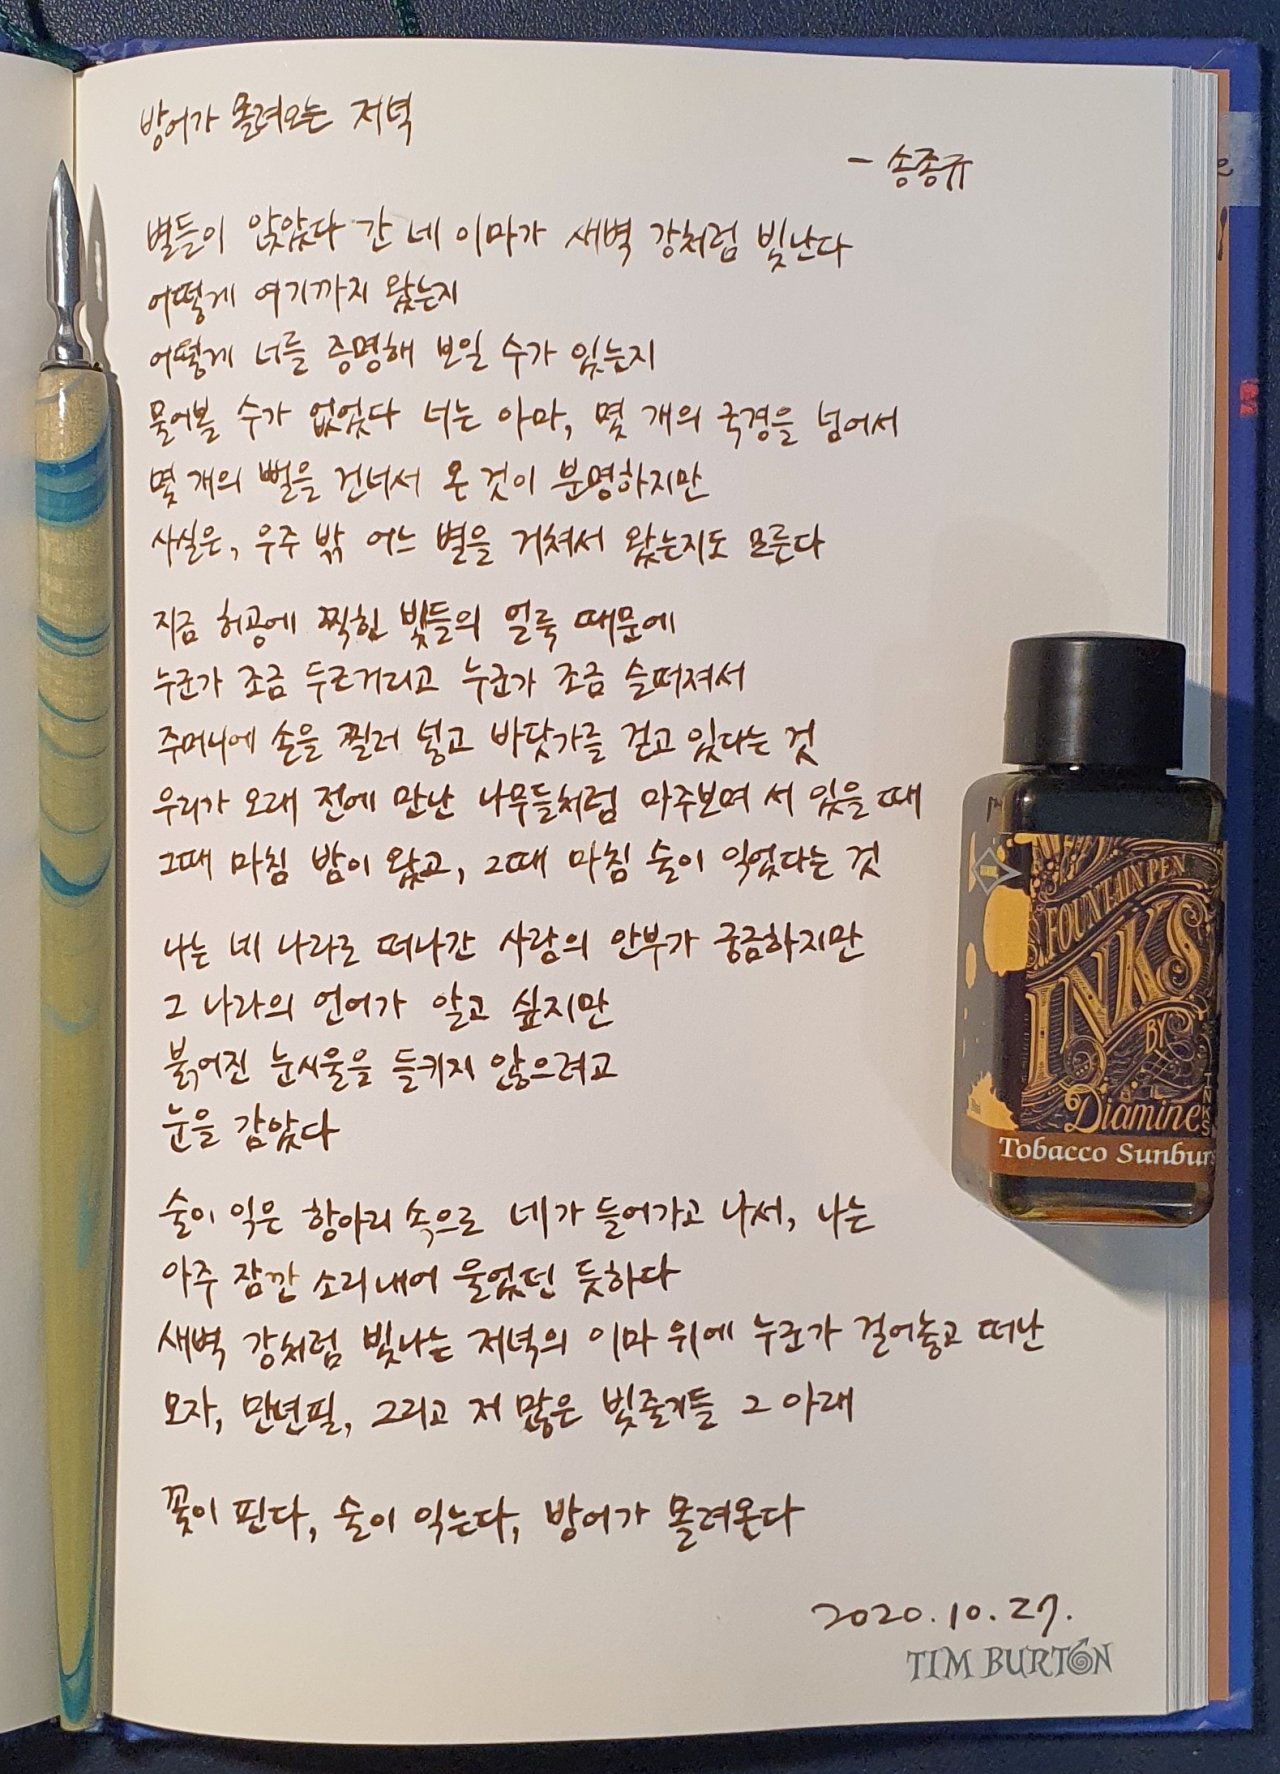 방어가 몰려오는 저녁
- 송종규
별들이 앉았다 간 네 이마가 새벽 강처럼 빛난다
어떻게 여기까지 왔는지
어떻게 너를 증명해 보일 수가 있는지
물어볼 수가 없었다 너는 아마, 몇 개의 국경을 넘어서
몇 개의 뻘을 건너서 온 것이 분명하지만
사실은, 우주 밖 어느 별을 거쳐서 왔는지도 모른다
지금 허공에 찍힌 빛들의 얼룩 때문에
누군가 조금 두근거리고 누군가 조금 슬퍼져서
주머니에 손을 찔러 넣고 바닷가를 걷고 있다는 것
우리가 오래 전에 만난 나무들처럼 마주보며 서 있을 때
그때 마침 밤이 왔고, 그때 마침 술이 익었다는 것
나는 네 나라로 떠나간 사람의 안부가 궁금하지만
그 나라의 언어가 알고 싶지만
붉어진 눈시울을 들키지 않으려고
눈을 감았다
술이 익은 항아리 속으로 네가 들어가고 나서, 나는
아주 잠깐 소리내어 울었던 듯하다
새벽 강처럼 빛나는 저녁의 이마 위에 누군가 걸어놓고 떠난
모자, 만년필, 그리고 저 많은 빛줄기들 그 아래
꽃이 핀다, 술이 익는다, 방어가 몰려온다
2020.10.27.
TIM BURTON
FOUNTAIN PEN
INKS
BY
Diamine
Tobacco Sunburs